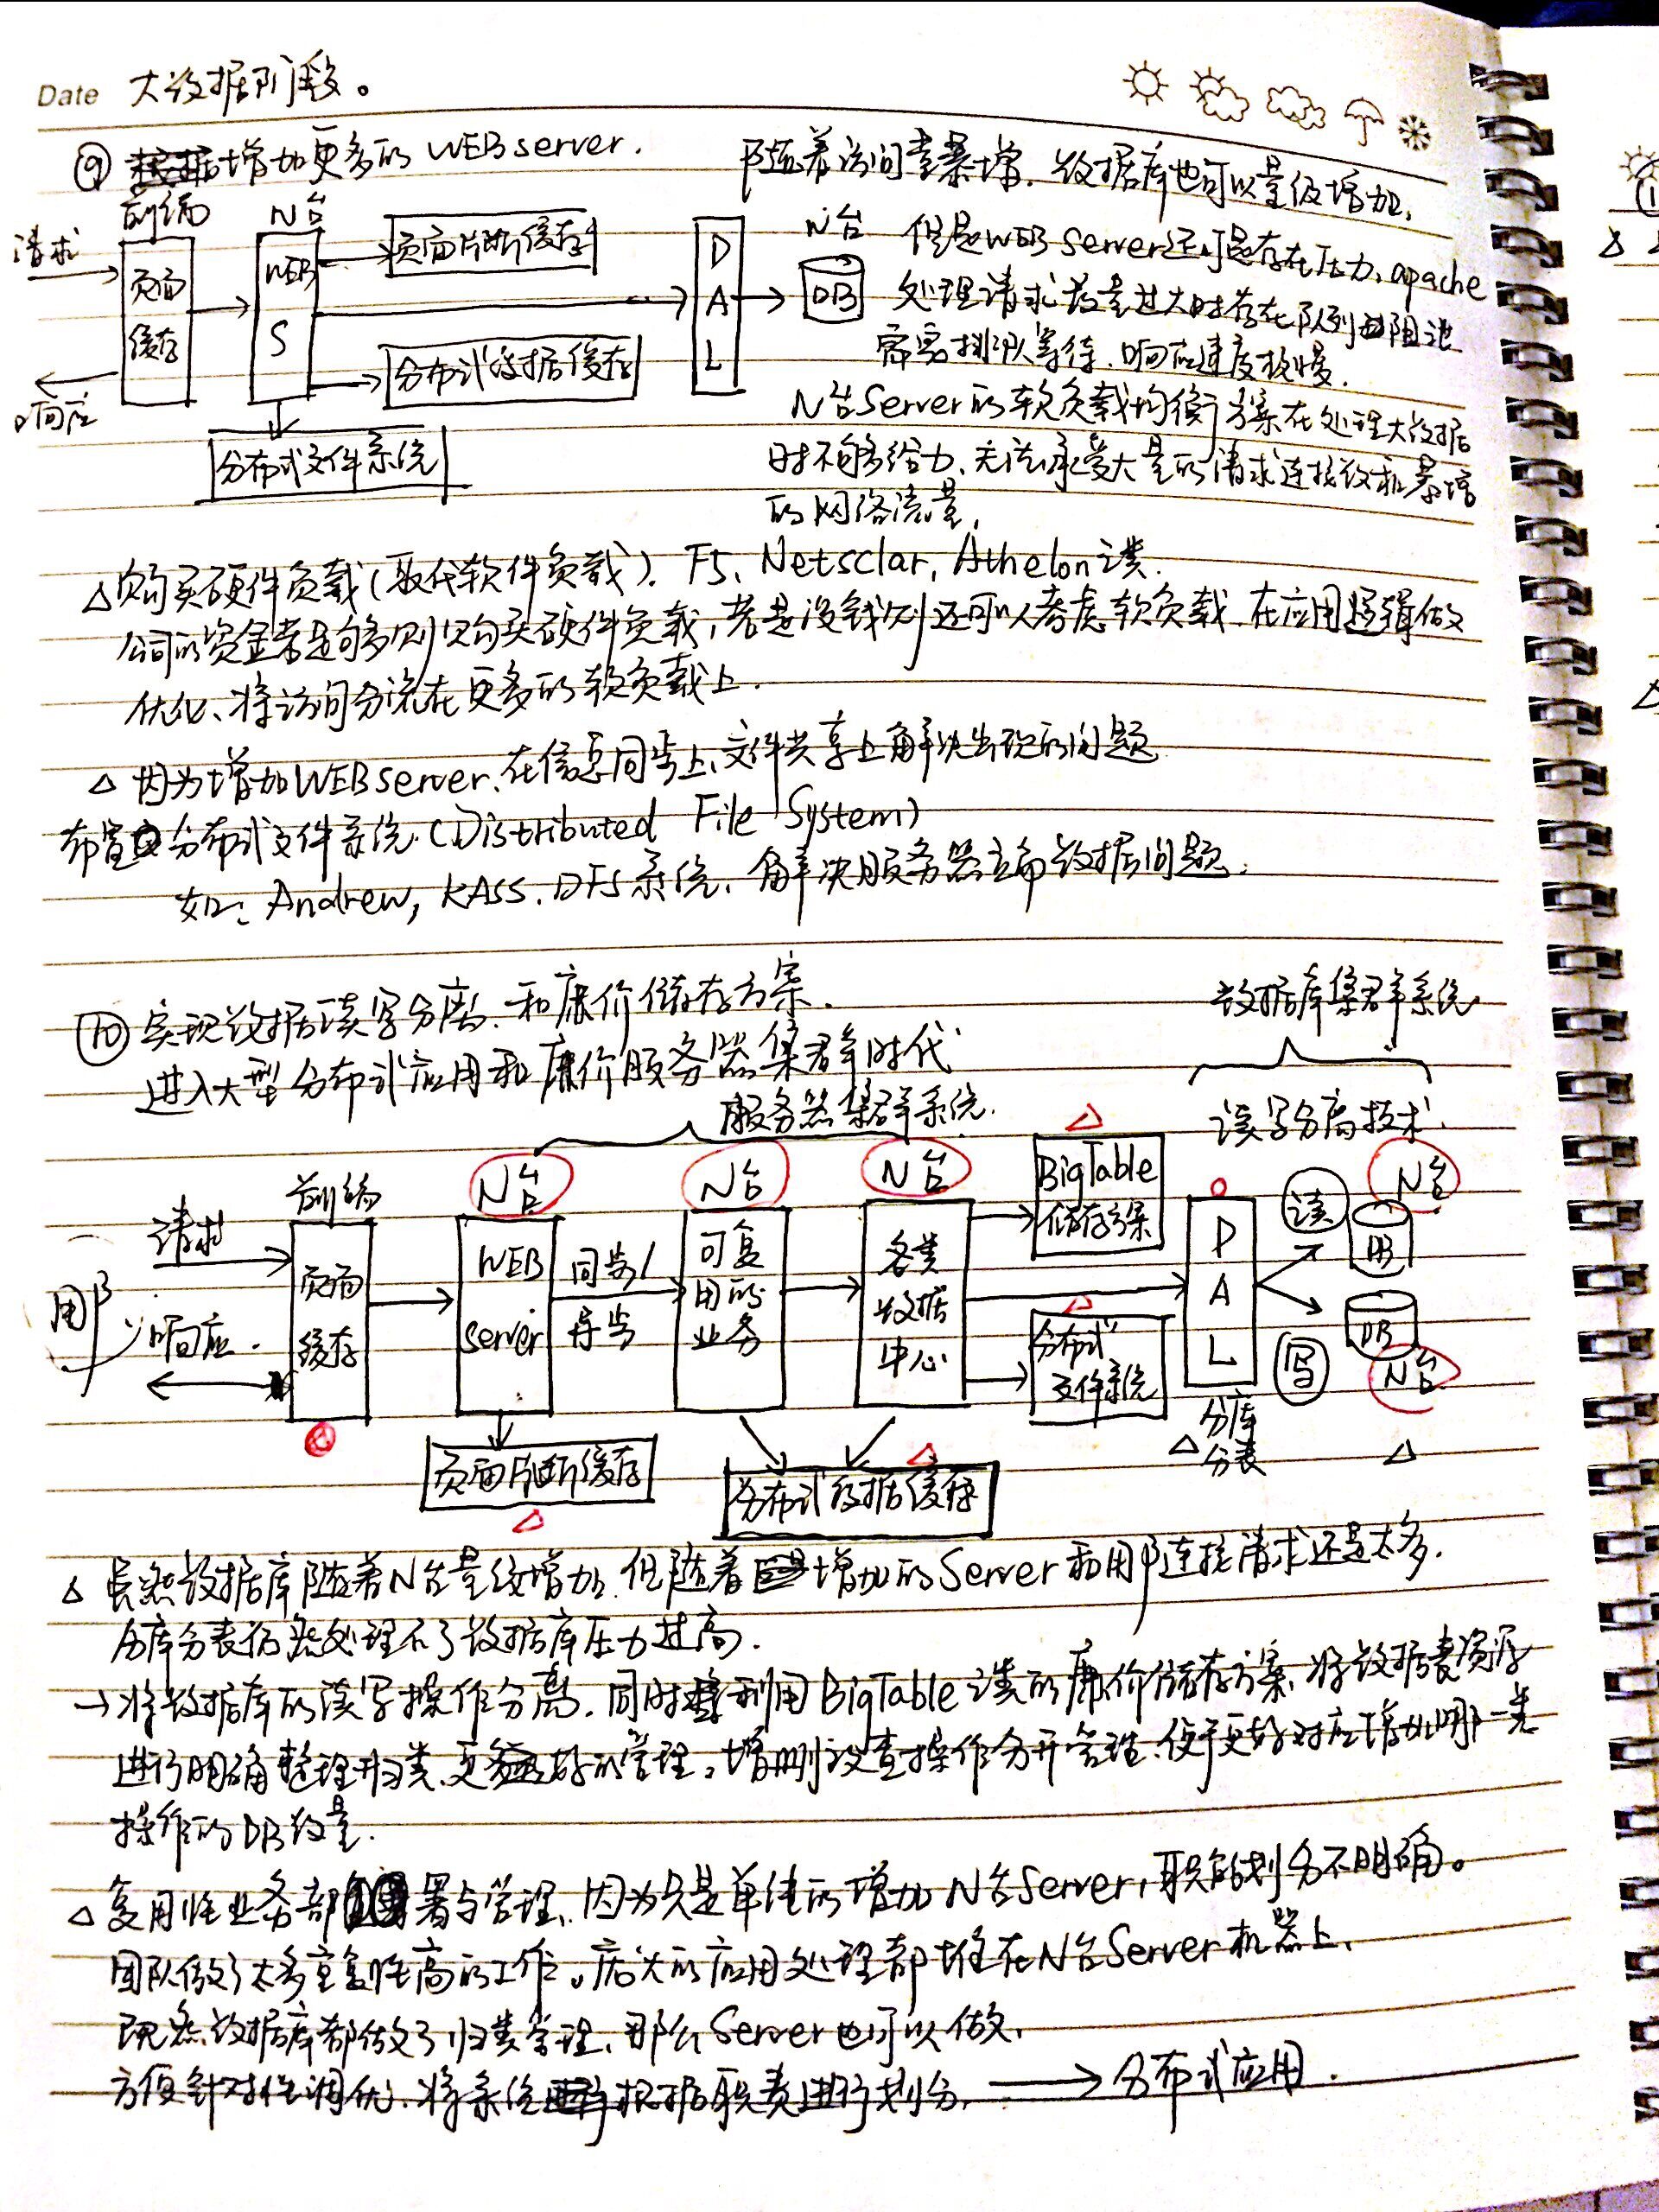 Date 大数据阶段。
⑨ 增加更多的WEB server.
随着访问量暴增,数据库也可以量级增加,
但是WEB server还是存在压力,apache
处理请求数量过大时存在队列阻池
需要排队等待,响应速度极慢.
N台Server的软负载均衡方案在处理大数据
时不够给力,无法承受大量的请求连接数和暴增
的网络流量,
请求
响应
前端
页面
缓存
N台
WEB
S
页面片断缓存
分布式数据缓存
分布式文件系统
D
A
L
N台
DB
△ 购买硬件负载(取代软件负载). F5、Netsclar, Athelon类.
公司的资金若是够多则购买硬件负载,若是没钱则还可以考虑软负载.在应用逻辑做
优化、将访问分流在更多的软负载上.
△ 因为增加WEB server、在信息同步上、文件共享上解决出现的问题
布置分布式文件系统.(Distributed File System)
如:Andrew, KASS、DFS系统、解决服务器立即数据问题.
⑩ 实现数据读写分离、和廉价储存方案.
进入大型分布式应用和廉价服务器集群时代
服务器集群系统.
数据库集群系统
读写分离技术
用户
请求
响应.
前端
页面
缓存
N台
WEB
server
同步/
异步
N台
可复
用的
业务
N台
各类
数据
中心
BigTable
储存方案
分布式
文件系统
D
A
L
分库
分表
读
写
N台
DB
DB
N台
页面片断缓存
分布式数据缓存
△ 虽然数据库随着N台量级增加.但随着增加的Server和用户连接请求还是太多.
分库分表仍然处理不了数据库压力过高.
→ 将数据库的读写操作分离.同时利用BigTable类的廉价储存方案、将数据表资源
进行明确整理归类、更好的管理。增删改查操作分开管理、便于更好对应增加哪一类
操作的DB数量.
△ 复用性业务部署与管理、因为只是单纯的增加N台Server,职能划分不明确。
团队做了太多重复性高的工作。庞大的应用处理都堆在N台Server机器上、
既然数据库都做了归类管理、那么Server也可以做、
方便针对性调优、将系统根据职责进行划分. → 分布式应用.